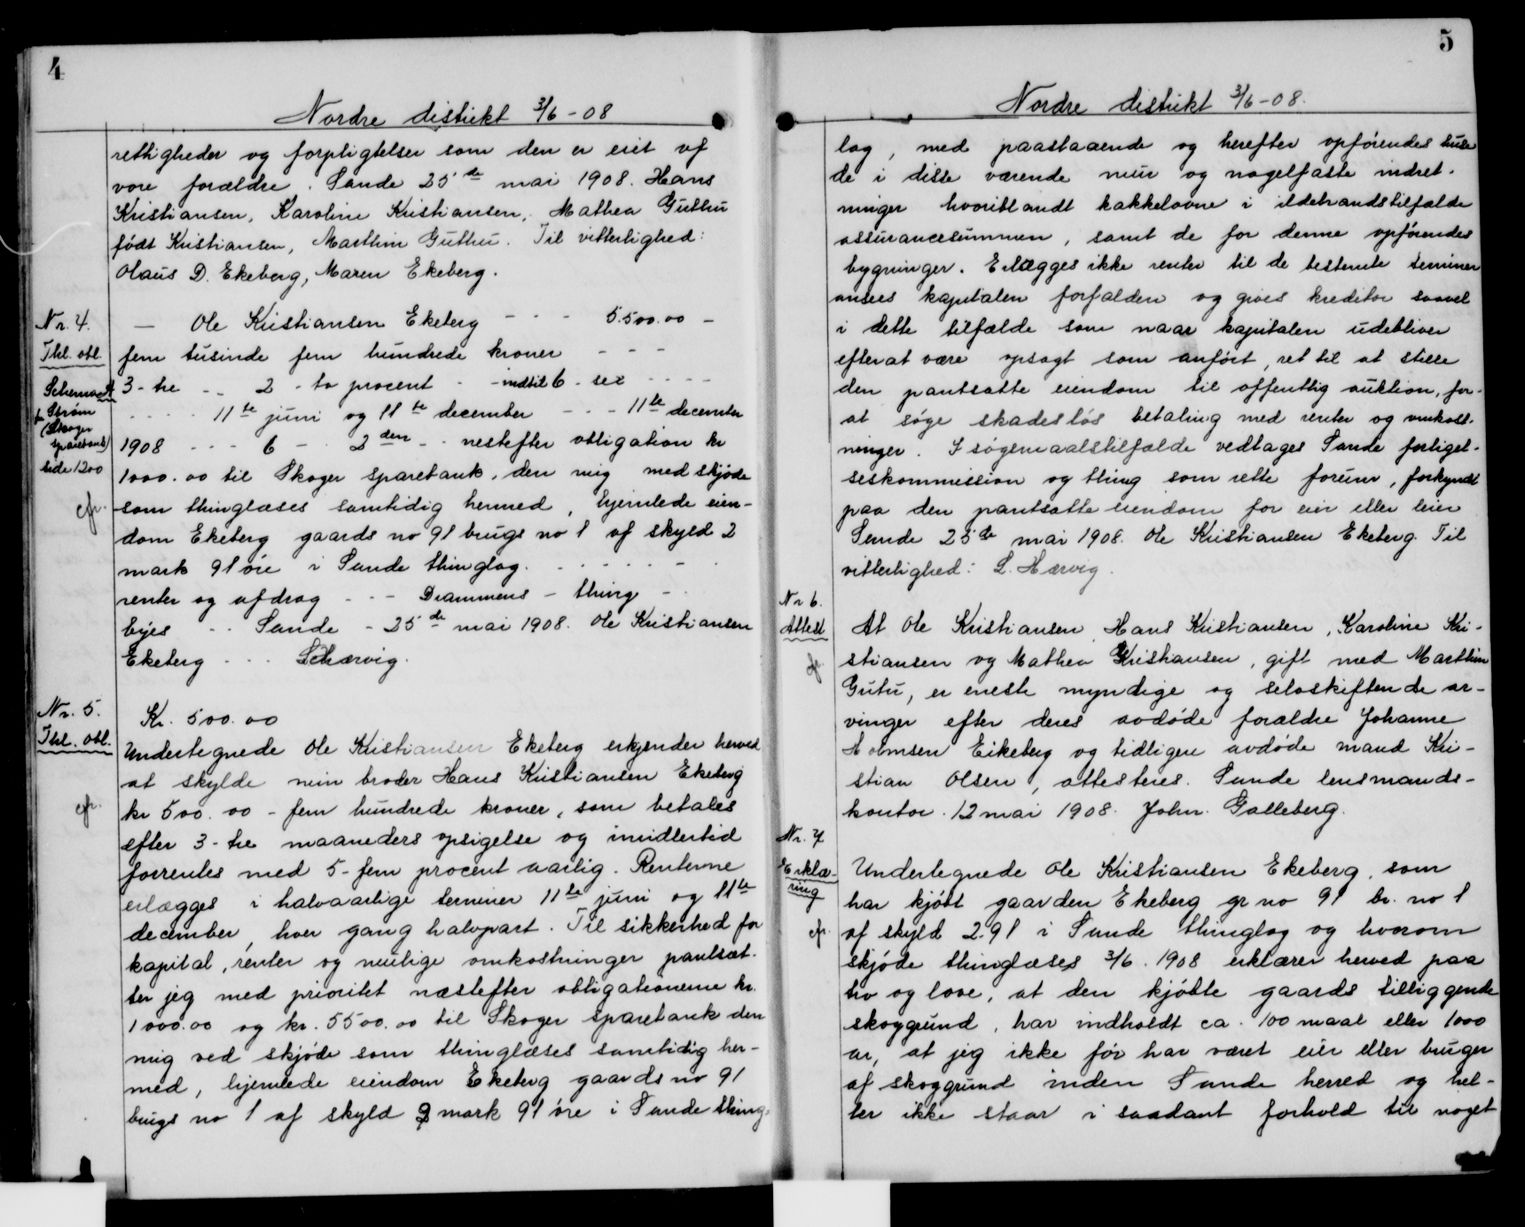 4
Nordre distrikt 3/6-08
rettigheder og forpligtelser som den er eiet af
vore forældre. Sande 25de mai 1908. Hans
Kristiansen, Karoline Kristiansen, Mathea Guttu
født Kristiansen, Marthin Guttu. Til vitterlighed:
Olaus D. Ekeberg, Maren Ekeberg.
Nr. 4.
Thl. obl.
Schema A
Strøm
(Skoger
sparebank)
side 1200
cfr.
— Ole Kristiansen Ekeberg - - - 5.500.00 -
fem tusinde fem hundrede kroner - - -
3 - tre - - 2 - to procent - - indtil 6 - sex - - - -
- - - - 11te juni og 11te december - - - 11te december
1908 - - - 6 - - 2den - - nestefter obligation kr
1000.00 til Skoger sparebank, den mig med skjøde
som thinglæses samtidig hermed, hjemlede eien-
dom Ekeberg gaards no 91 brugs no 1 af skyld 2
mark 91 øre i Sande thinglag. - - - - - -
renter og afdrag - - - Drammens - thing - -
byes - - Sande - 25de mai 1908. Ole Kristiansen
Ekeberg - - - L. Hærvig.
Nr. 5.
Thl. obl.
cfr.
Kr. 500.00
Undertegnede Ole Kristiansen Ekeberg erkjender herved
at skylde min broder Hans Kristiansen Ekeberg
kr 500.00 - fem hundrede kroner, som betales
efter 3 - tre maaneders opsigelse og imidlertid
forrentes med 5 - fem procent aarlig. Renterne
erlægges i halvaarlige terminer 11te juni og 11te
december, hver gang halvpart. Til sikkerhed for
kapital, renter og mulige omkostninger pantsæt-
ter jeg med prioritet næstefter obligationerne kr.
1000.00 og kr. 5500.00 til Skoger sparebank den
mig ved skjøde som thinglæses samtidig her-
med, hjemlede eiendom Ekeberg gaards no 91
brugs no 1 af skyld 2 mark 91 øre i Sande thing-
5
Nordre distrikt 3/6-08.
lag, med paastaaende og herefter opførendes huse
de i disse værende mur og nagelfaste indret-
ninger hvoriblandt kakkelovne i ildebrandstilfælde
assurancesummen, samt de for denne opførendes
bygninger. Erlægges ikke renter til de bestemte terminer
ansees kapitalen forfalden og gives kreditor saavel
i dette tilfælde som naar kapitalen udebliver
efterat være opsagt som anført, ret til at stille
den pantsatte eiendom til offentlig auktion, for-
at søge skadesløs betaling med renter og omkost-
ninger. I søgemaalstilfælde vedtages Sande forliget-
seskommission og thing som rette forum, forkyndt
paa den pantsatte eiendom for eier eller leier
Sande 25de mai 1908. Ole Kristiansen Ekeberg. Til
vitterlighed: L. Hærvig.
Nr 6.
Attest
cfr.
At Ole Kristiansen, Hans Kristiansen, Karoline Kri-
stiansen og Mathea Kristiansen, gift med Marthin
Gutu, er eneste myndige og selvskiftende ar-
vinger efter deres avdøde forældre Johanne
Holmsen Eikeberg og tidligere avdøde mand Kri-
stian Olsen, attesteres. Sande lensmands-
kontor. 12 mai 1908. John. Galleberg.
Nr. 7
Erklæ-
ring
cfr.
Undertegnede Ole Kristiansen Ekeberg, som
har kjøbt gaarden Ekeberg gr no 91 br. no 1
af skyld 2.91 i Sande thinglag og hvorom
skjøde thinglæses 3/6. 1908 erklærer herved paa
tro og love, at den kjøbte gaards tilliggende
skoggrund, har indholdt ca. 100 maal eller 1000
ar, at jeg ikke før har været eier eller bruger
af skoggrund inden Sande herred og hel-
ler ikke staar i saadant forhold til noget